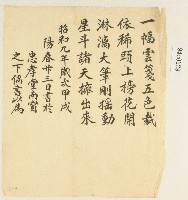 一幅雲箋五色裁
依稀頭上搒花開
淋漓大筆剛揺動
星斗諸天擁出來
昭和九年歲次甲戌
陽春廿三日書於
忠孝堂南窗
之下偶書以為